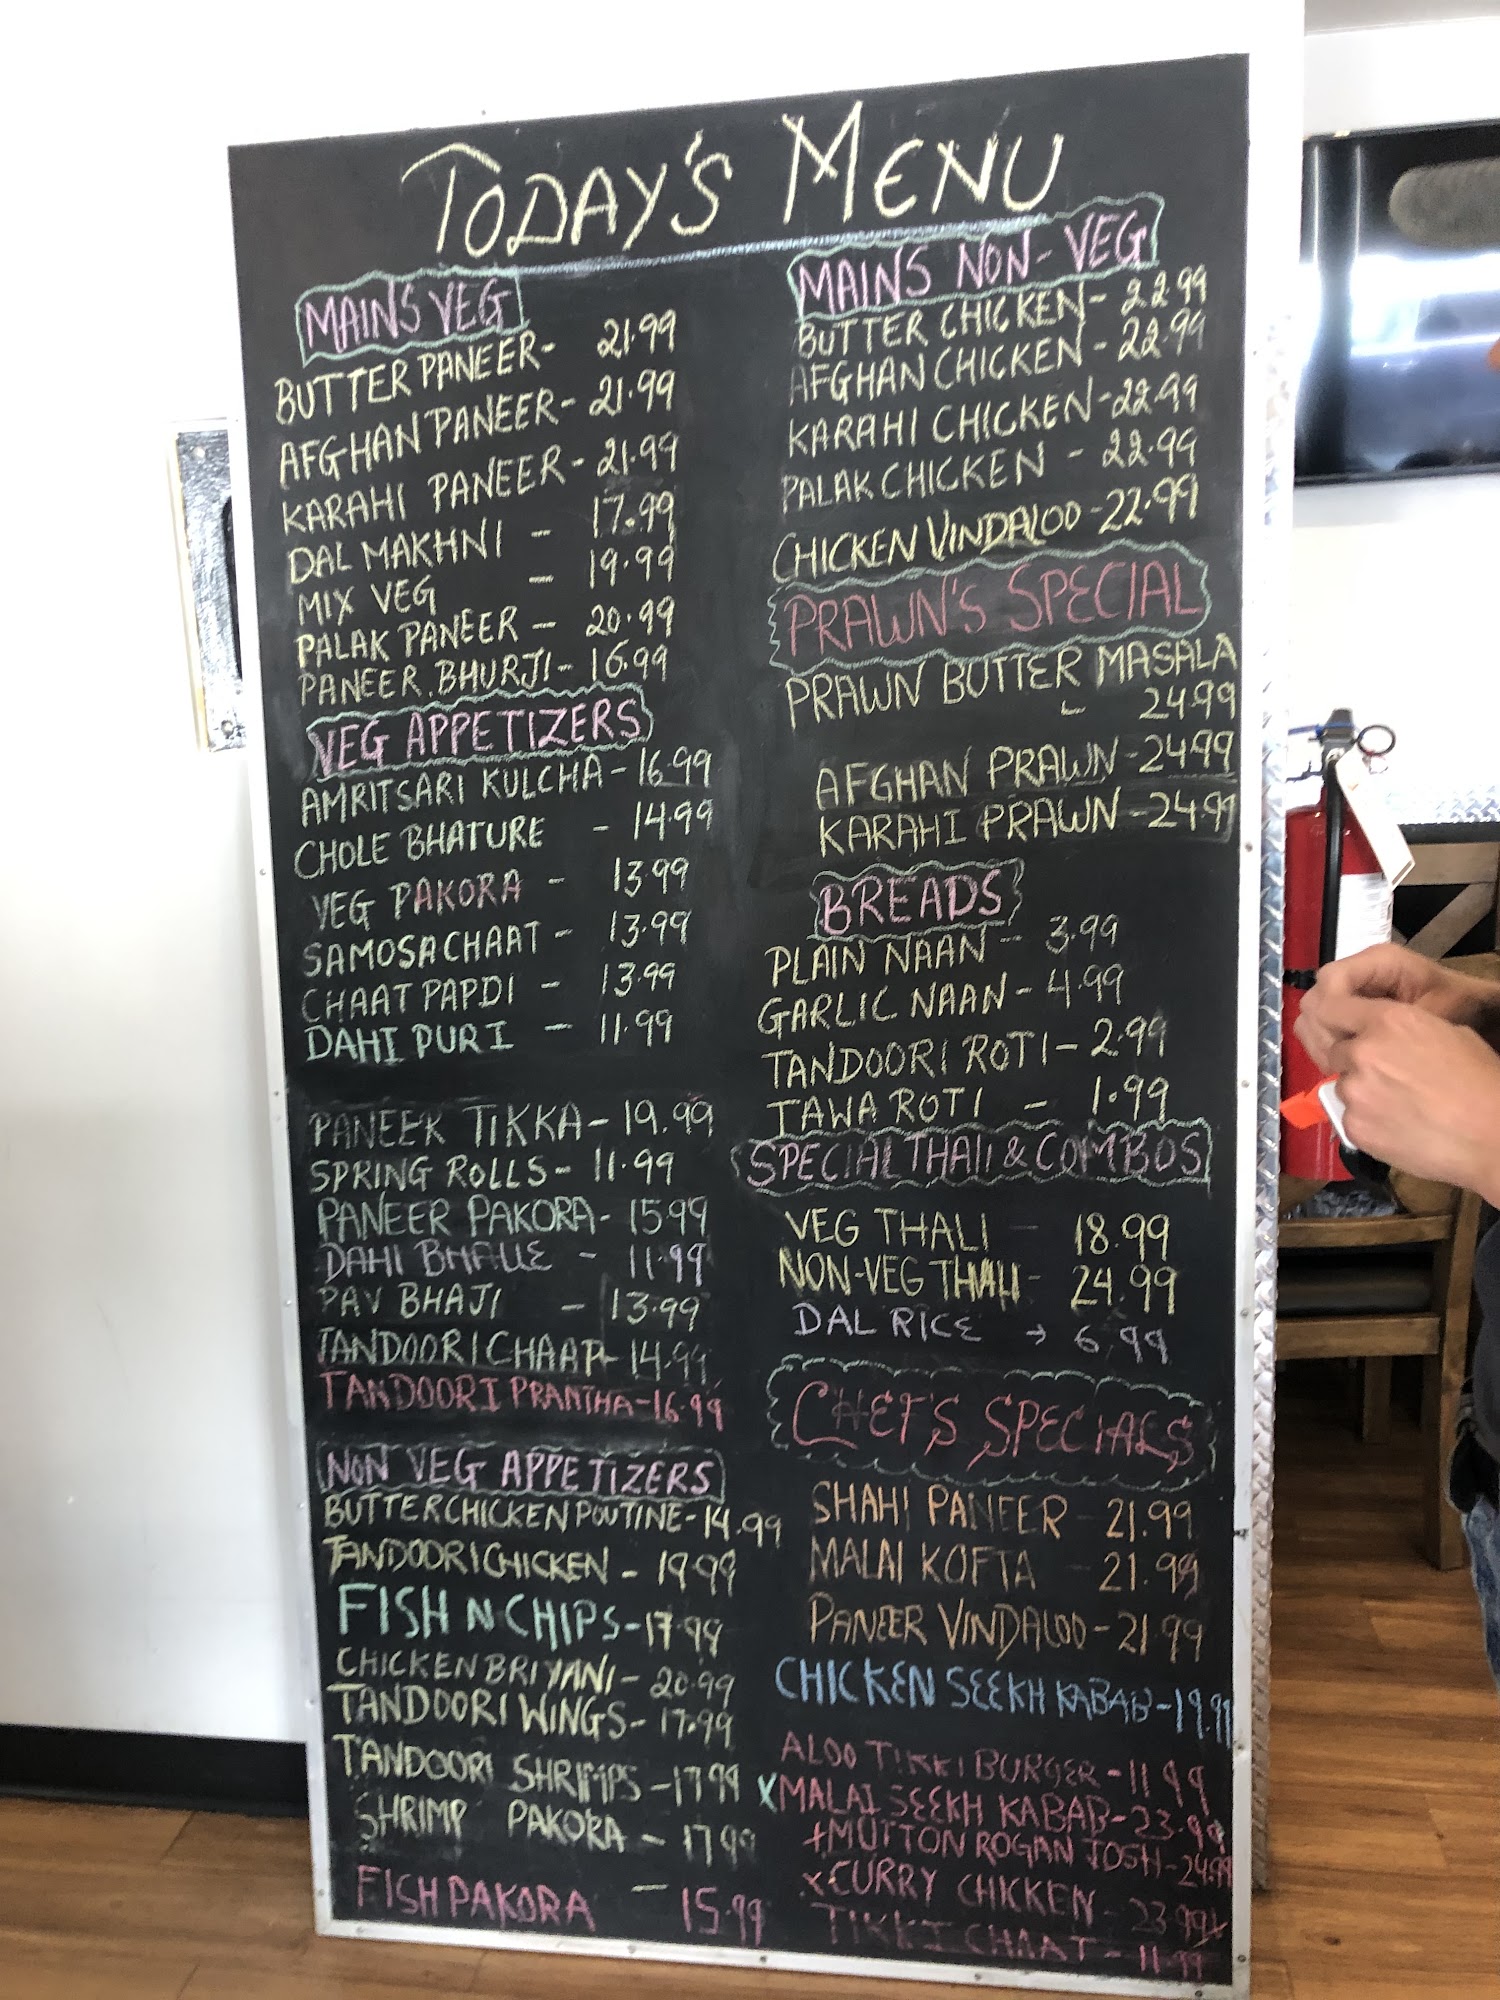 TODAY'S MENU
MAINS VEG
BUTTER PANEER- 21.99
AFGHAN PANEER- 21.99
KARAHI PANEER- 21.99
DAL MAKHNI - 17.99
MIX VEG - 19.99
PALAK PANEER - 20.99
PANEER BHURJI- 16.99
VEG APPETIZERS
AMRITSARI KULCHA-16.99
CHOLE BHATURE - 14.99
VEG PAKORA - 13.99
SAMOSA CHAAT - 13.99
CHAAT PAPDI - 13.99
DAHI PURI - 11.99
PANEER TIKKA-19.99
SPRING ROLLS- 11.99
PANEER PAKORA- 15.99
DAHI BHALLE - 11.99
PAV BHAJI - 13.99
TANDOORI CHAAP-14.99
TANDOORI PRANTHA-16.99
NON VEG APPETIZERS
BUTTER CHICKEN POUTINE-14.99
TANDOORI CHICKEN - 19.99
FISH N CHIPS-17.99
CHICKEN BRIYANI- 20.99
TANDOORI WINGS- 17.99
TANDOORI SHRIMPS -17.99
SHRIMP PAKORA - 17.99
FISH PAKORA - 15.99
MAINS NON-VEG
BUTTER CHICKEN- 22.99
AFGHAN CHICKEN- 22.99
KARAHI CHICKEN-22.99
PALAK CHICKEN - 22.99
CHICKEN VINDALOO -22.99
PRAWN'S SPECIAL
PRAWN BUTTER MASALA
- 24.99
AFGHAN PRAWN-24.99
KARAHI PRAWN-24.99
BREADS
PLAIN NAAN - 3.99
GARLIC NAAN - 4.99
TANDOORI ROTI- 2.99
TAWA ROTI - 1.99
SPECIAL THALI & COMBOS
VEG THALI - 18.99
NON-VEG THALI- 24.99
DAL RICE → 6.99
CHEF'S SPECIALS
SHAHI PANEER - 21.99
MALAI KOFTA - 21.99
PANEER VINDALOO-21.99
CHICKEN SEEKH KABAB-19.99
ALOO TIKKI BURGER-11.99
x MALAI SEEKH KABAB-23.99
+MUTTON ROGAN JOSH-24.99
x CURRY CHICKEN - 23.99
TIKKI CHAAT - 11.99